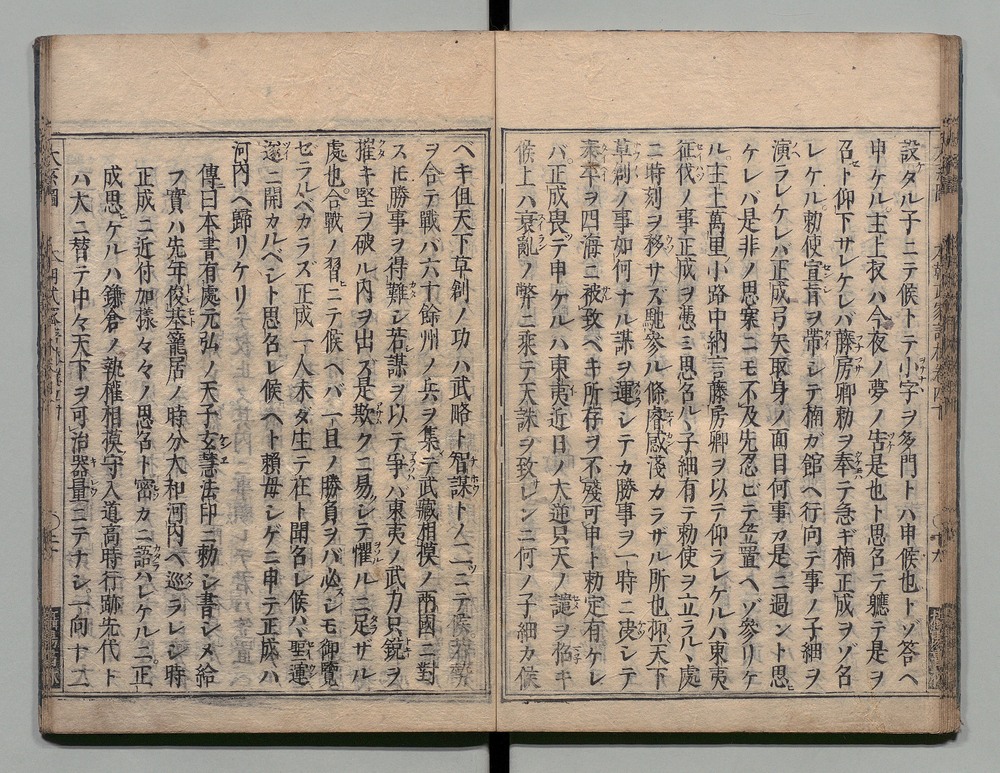 設タル子ニテ候トテ小字ヲ多門トハ申候也トゾ答ヘ
申ケル主上扨ハ今夜ノ夢ノ告是也ト思名テ軈テ是ヲ
召ト仰下サレケレバ藤房卿勅ヲ奉テ急ギ楠正成ヲゾ名
レケル勅使宣旨ヲ帯シテ楠ガ館ヘ行向テ事ノ子細ヲ
演ラレケレバ正成弓矢取身ノ面目何事カ是ニ過ント思
ケレバ是非ノ思案ニモ不及先忍ビテ笠置ヘゾ參リケ
ル主上萬里小路中納言藤房卿ヲ以テ仰ラレケルハ東夷
征伐ノ事正成ヲ憑ミ思名ルヽ子細有テ勅使ヲ立ラルヽ處
ニ時刻ヲ移サズ馳參ル條睿感淺カラザル所也仰天下
草創ノ事如何ナル謀ヲ運シテカ勝事ヲ一時ニ决シテ
泰平ヲ四海ニ被致ベキ所存ヲ不殘可申ト勅定有ケレ
バ正成畏テ申ケルハ東夷近日ノ大逆只天ノ譴ヲ招キ
候上ハ衰亂ノ弊ニ乘テ天誅ヲ致レンニ何ノ子細カ候
ベキ但天下草創ノ功ハ武略ト智謀トノ二ニテ候若勢
ヲ合テ戰バ六十餘州ノ兵ヲ集テ武藏相摸ノ兩國ニ對
ス𪜈勝事ヲ得難シ若謀ヲ以テ爭ハバ東夷ノ武力只鋭ヲ
摧キ堅ヲ破ル内ヲ出ズ是欺クニ易シテ懼ルヽニ足ザル
處也合戰ノ習ニテ候ヘバ一旦ノ勝負ヲバ必シモ御覽
セラルベカラズ正成一人未ダ生テ在ト聞名レ候ハヾ聖運
遂ニ開カルベシト思名レ候ヘト頼母シゲニ申テ正成ハ
河内ヘ歸リケリ
傳曰本書有處元弘ノ天子玄慧法印ニ勅シ書シメ給
フ實ハ先年俊基籠居ノ時分大和河内ヘ巡ラレシ時
正成ニ近付加樣々々ノ思名ト密カニ語ハレケルニ正
成思ヒケルハ鎌倉ノ執權相摸守入道高時行跡先代ト
ハ大ニ替テ中々天下ヲ可治器量ニテナシ一向十二